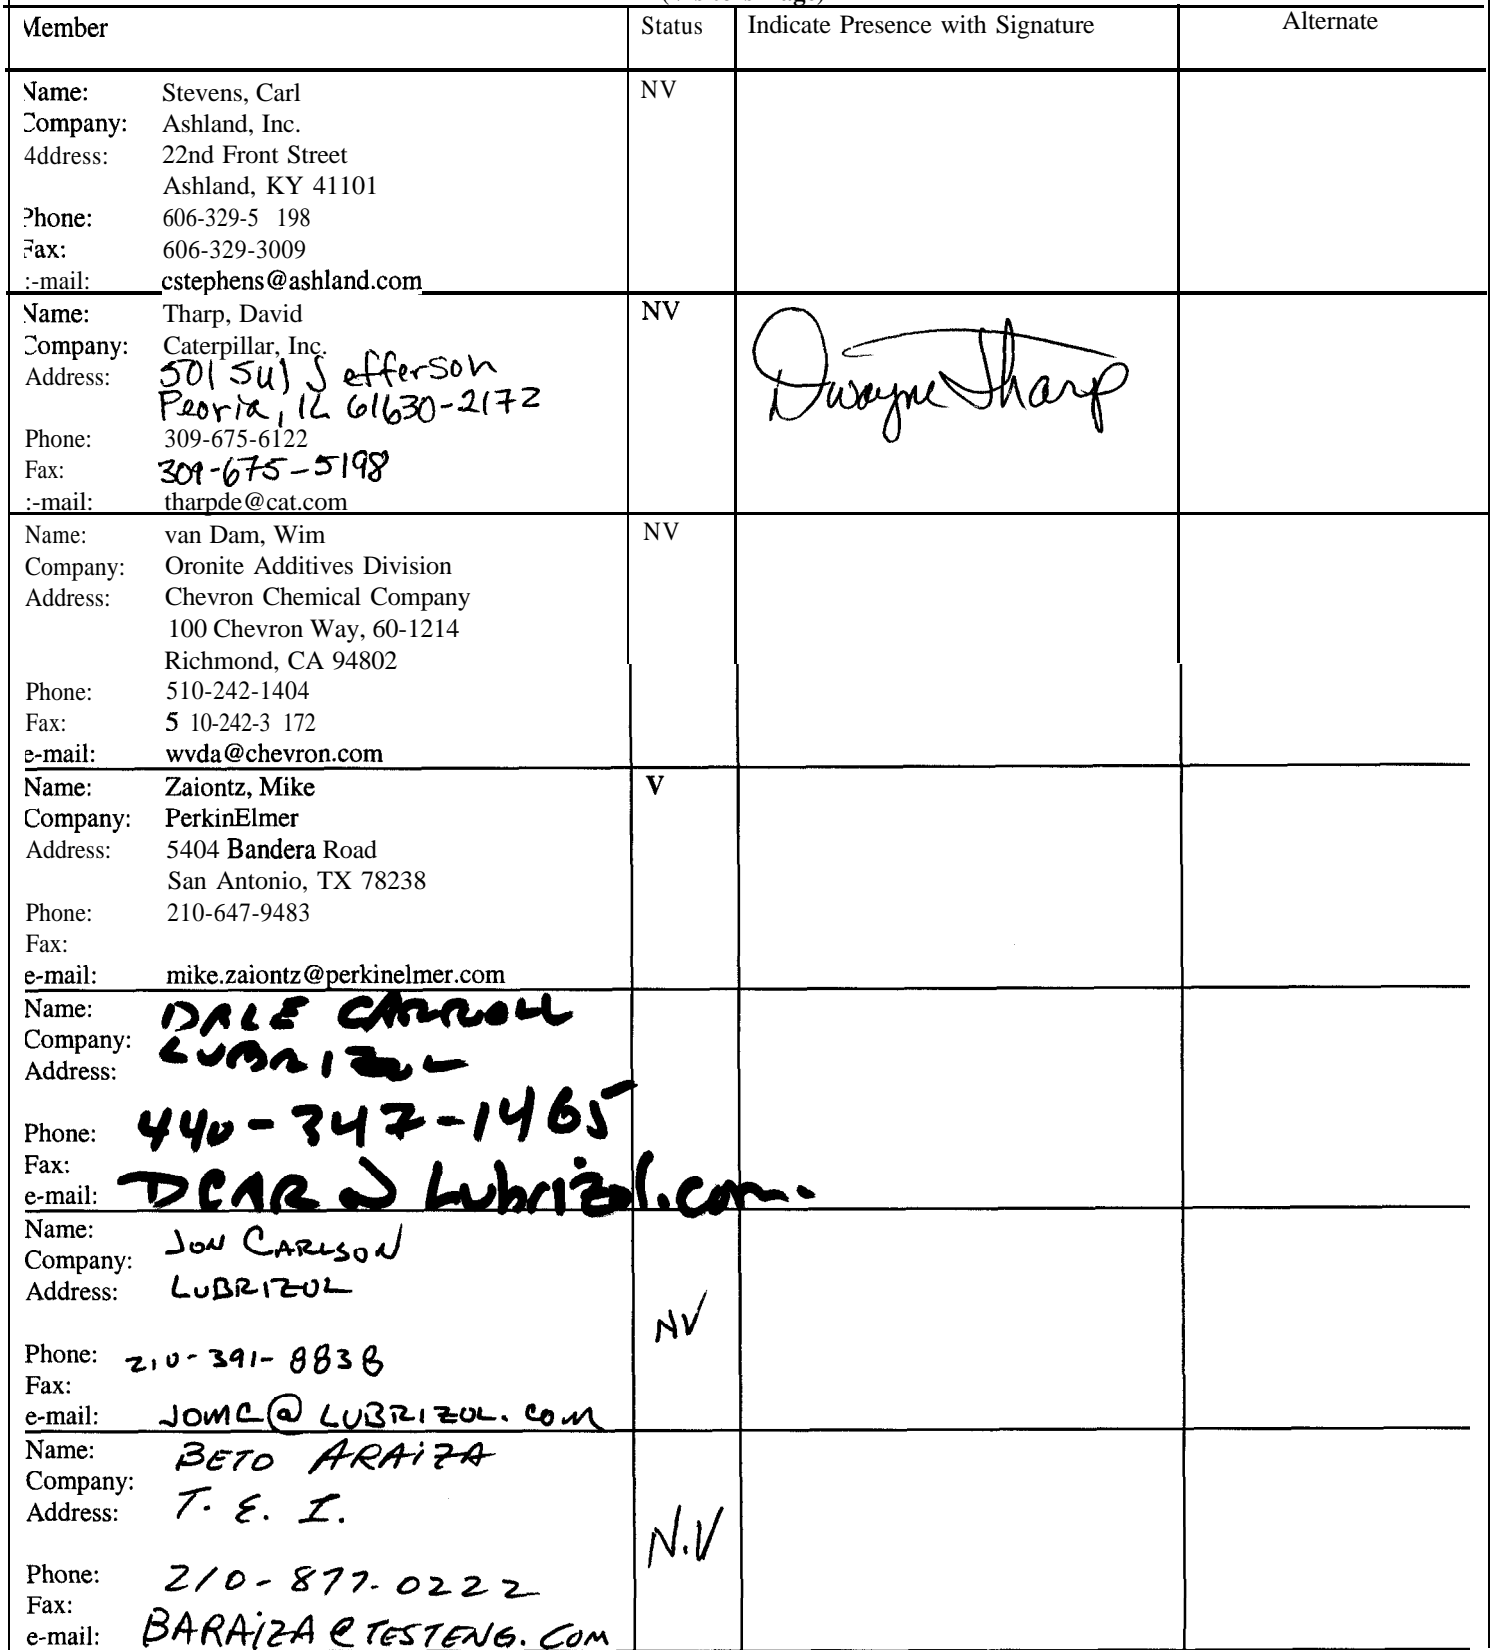 Member Status Indicate Presence with Signature Alternate
Name: Stevens, Carl NV
Company: Ashland, Inc.
Address: 22nd Front Street
Ashland, KY 41101
Phone: 606-329-5 198
Fax: 606-329-3009
:-mail: cstephens@ashland.com
Name: Tharp, David NV
Company: Caterpillar, Inc.
Address: 501 SW Jefferson
Peoria, IL 61630-2172
Dwayne Tharp
Phone: 309-675-6122
Fax: 309-675-5198
:-mail: tharpde@cat.com
Name: van Dam, Wim NV
Company: Oronite Additives Division
Address: Chevron Chemical Company
100 Chevron Way, 60-1214
Richmond, CA 94802
Phone: 510-242-1404
Fax: 5 10-242-3 172
e-mail: wvda@chevron.com
Name: Zaiontz, Mike V
Company: PerkinElmer
Address: 5404 Bandera Road
San Antonio, TX 78238
Phone: 210-647-9483
Fax:
e-mail: mike.zaiontz@perkinelmer.com
Name: DALE CARROLL
Company: LUBRIZOL
Address:
Phone: 440-347-1465
Fax:
e-mail: DCAR @ Lubrizol.com.
Name: JON CARLSON
Company:
Address: LUBRIZOL
NV
Phone: 210-391-8838
Fax:
e-mail: JOMC@LUBRIZOL.COM
Name: BETO ARAIZA
Company:
Address: T. E. I.
N.V
Phone: 210-877-0222
Fax:
e-mail: BARAIZA@TESTENG.COM